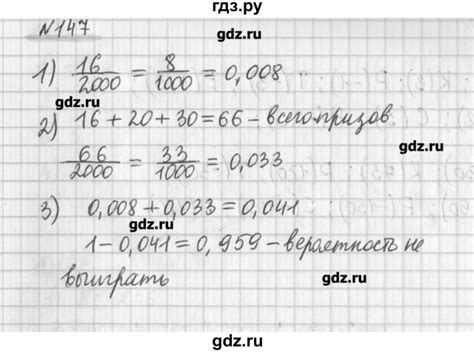 гдз.ру
№147
gdz.ru
1) 16/2000 = 8/1000 = 0,008
gdz.ru
2) 16+20+30=66 – всего призов
gdz.ru
66/2000 = 33/1000 = 0,033
3) 0,008 + 0,033 = 0,041
gdz.ru
1 – 0,041 = 0,959 – вероятность не
выиграть
gdz.ru
gdz.ru